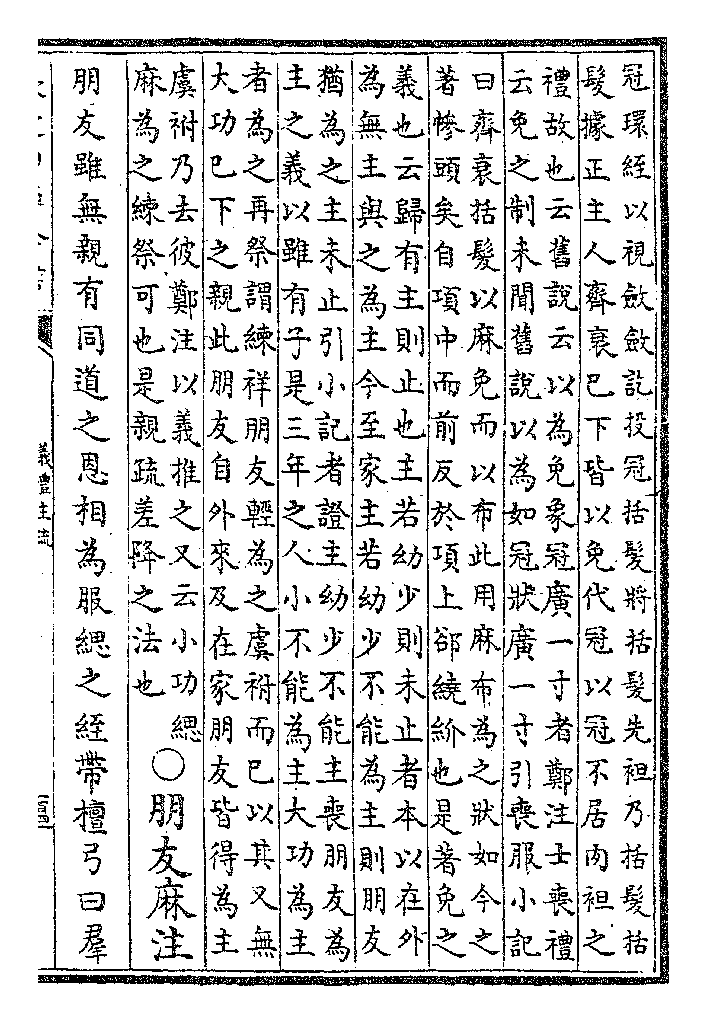 冠環絰以視斂斂訖投冠括髮將括髮先袒乃括髮括
髮據正主人齊衰已下皆以免代冠以冠不居肉袒之
禮故也云舊說云以為免象冠廣一寸者鄭注士喪禮
云免之制未聞舊說以為如冠狀廣一寸引喪服小記
曰齊衰括髮以麻免而以布此用麻布為之狀如今之
著幓頭矣自項中而前反於項上郤繞紒也是著免之
義也云歸有主則止也主若幼少則未止者本以在外
為無主與之為主今至家主若幼少不能為主則朋友
猶為之主未止引小記者證主幼少不能主喪朋友為
主之義以雖有子是三年之人小不能為主大功為主
者為之再祭謂練祥朋友輕為之虞祔而已以其又無
大功已下之親此朋友自外來及在家朋友皆得為主
虞祔乃去彼鄭注以義推之又云小功緦
麻為之練祭可也是親疏差降之法也
○朋友麻注
朋友雖無親有同道之恩相為服緦之絰帶檀弓曰羣